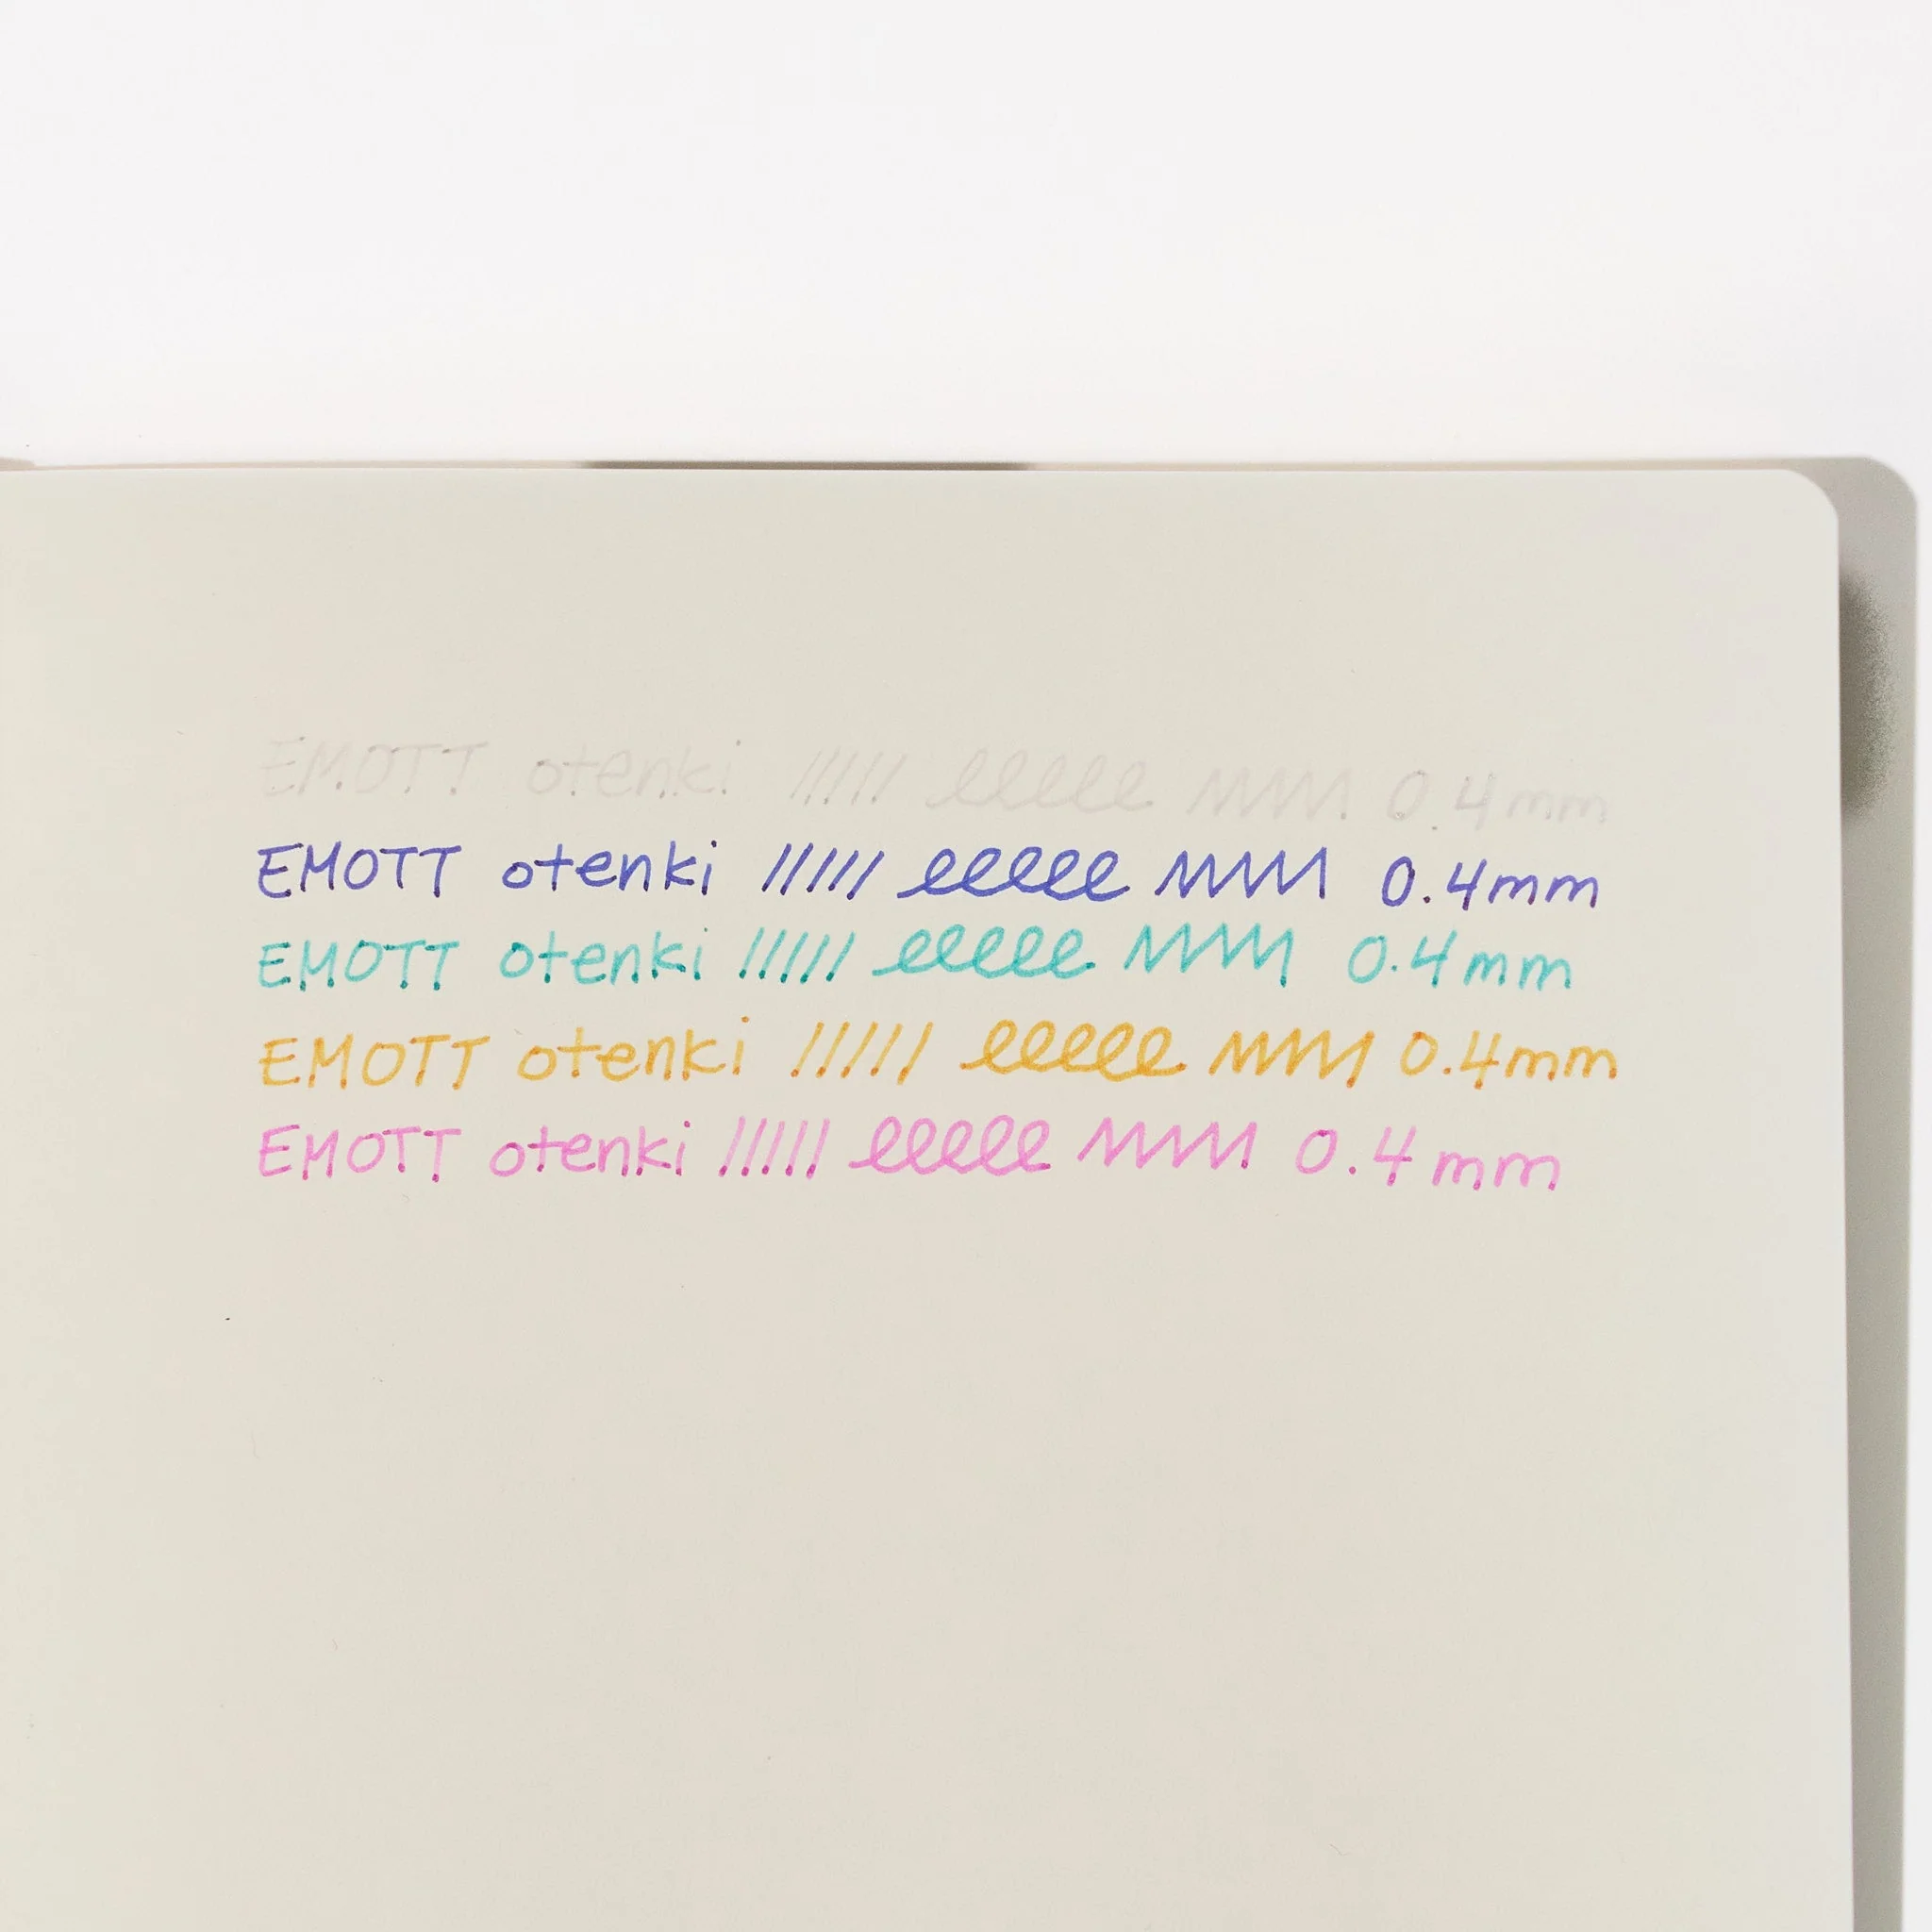 EMOTT otenki ///// eeeee MMM 0.4mm
EMOTT otenki ///// eeeee MMM 0.4mm
EMOTT otenki ///// eeeee MMM 0.4mm
EMOTT otenki ///// eeeee MMM 0.4mm
EMOTT otenki ///// eeeee MMM 0.4mm